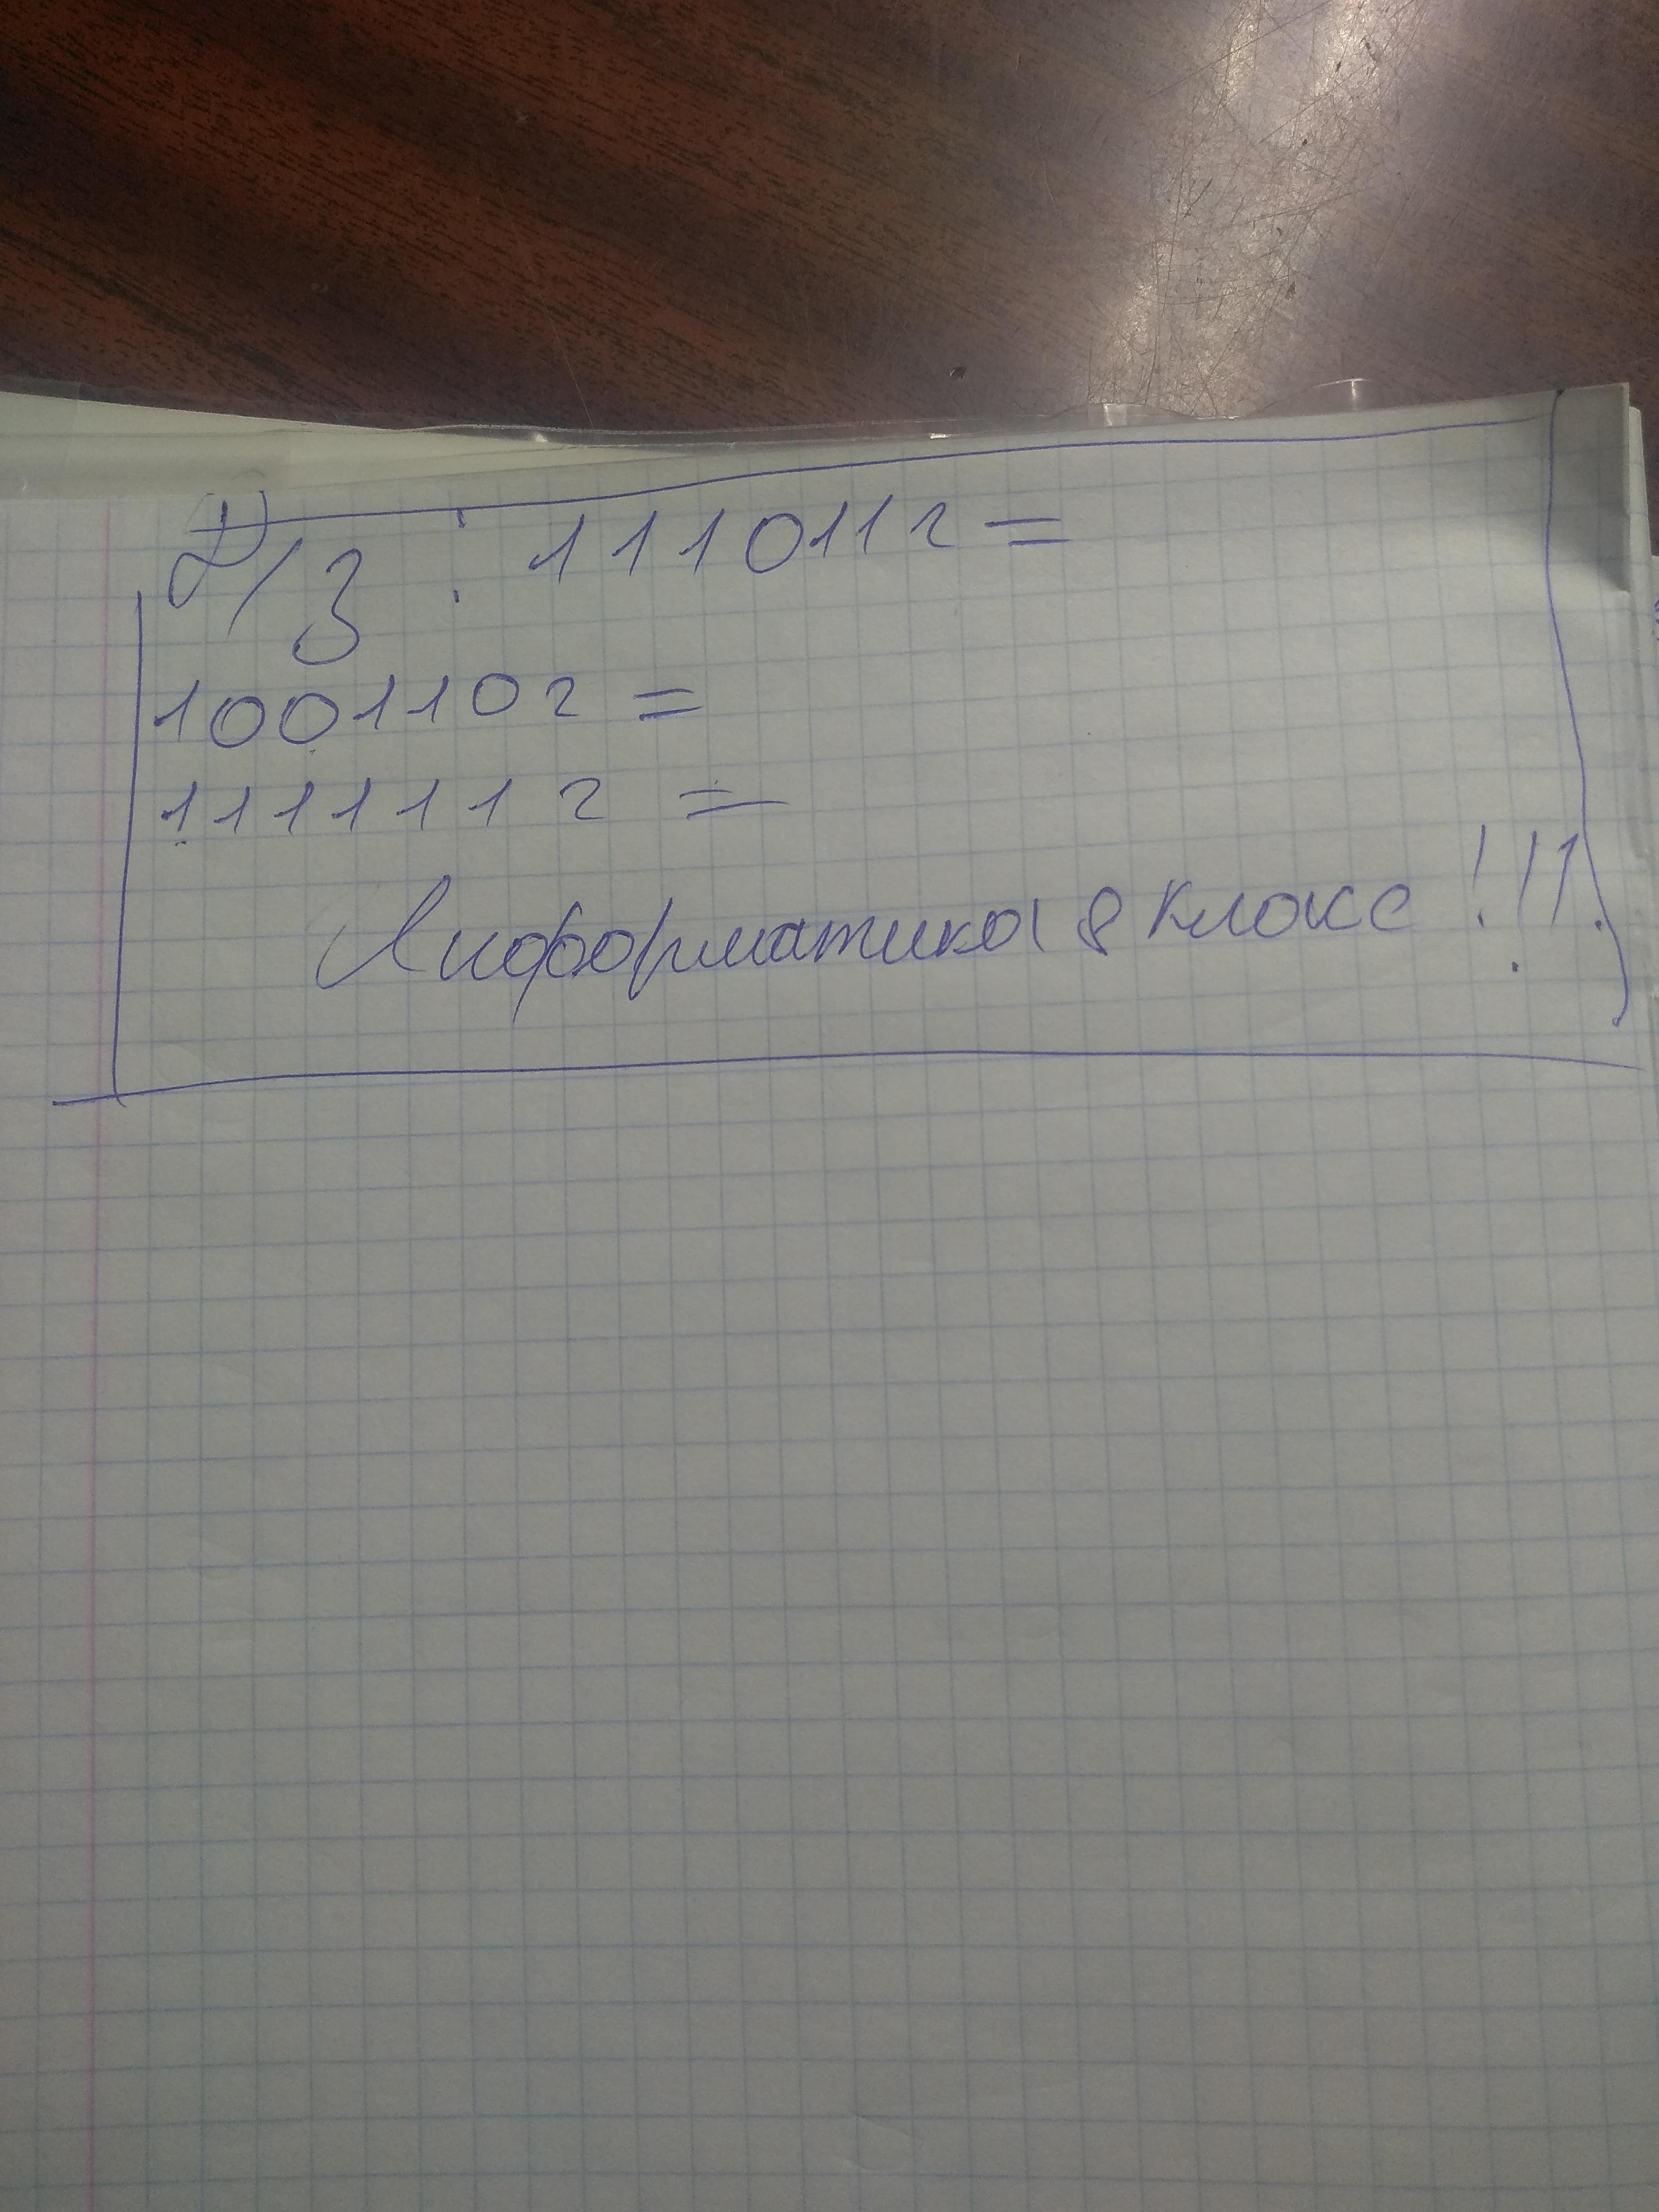 Д/З : 1110112 =
1001102 =
1111112 =
Информатика 8 класс !!!